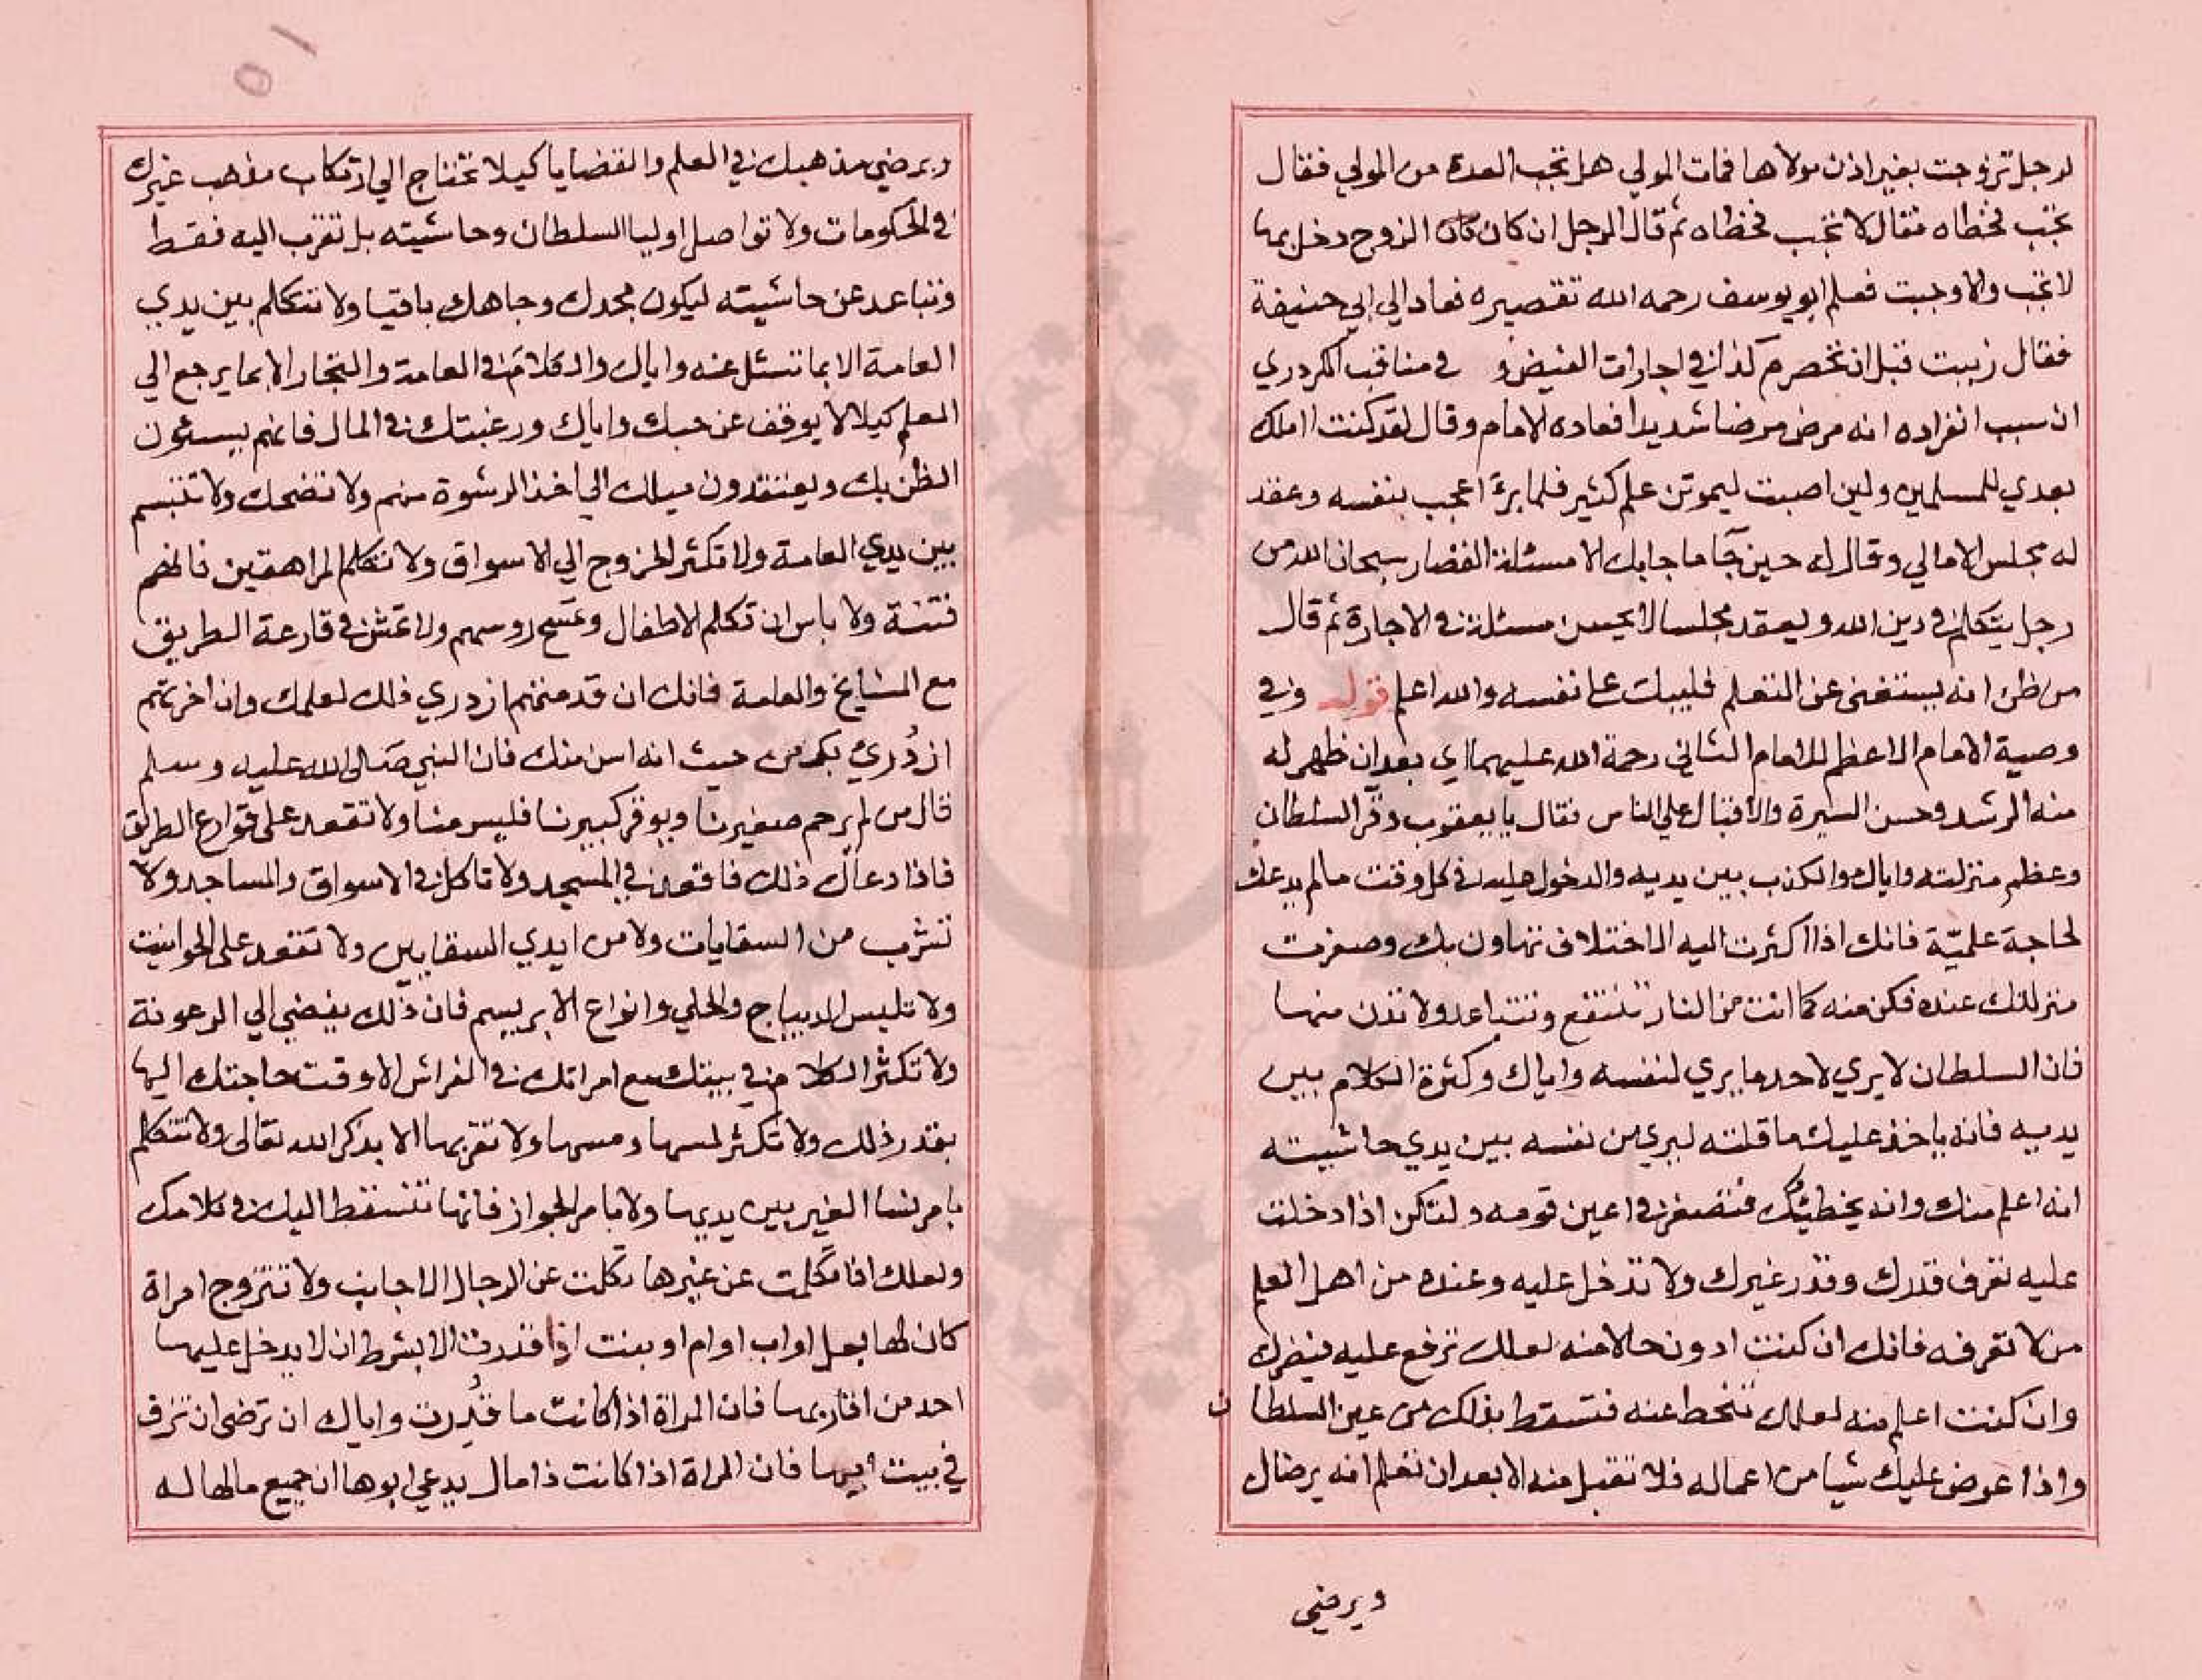 لرجل تزوجت بغير اذن مولاها فمات المولي هل تجب العدة من المولي فقال
تجب فخطاه فقال لا تجب فخطاه ثم قال الرجل ان كان الزوج دخل بها
لا تجب والا وجبت فعلم ابو يوسف رحمه الله تقصيره فعاد الي ابي حنيفة
فقال زببت قبل ان تحصرم كذا في اجارات الفيض و في مناقب الكردري
ان سبب انفراده انه مرض مرضا شديدا فعاده الامام وقال لقد كنت املك
بعدي للمسلمين ولين اصبت ليموتن علم كثير فلما برئ اعجب بنفسه وعقد
له مجلس الامالي وقال له حين جآ ما جابك الا مسئلة القصار سبحان الله من
رجل يتكلم في دين الله ويعقد مجلسا لا يحسن مسئلة في الاجارة ثم قال
من ظن انه يستغني عن التعلم فليبك علي نفسه والله اعلم قوله وفي
وصية الامام الاعظم للامام الثاني رحمة الله عليهما اي بعد ان ظهر له
منه الرشد وحسن السيرة والاقبال علي الناس فقال يا يعقوب وقر السلطان
وعظم منزلته واياك والكذب بين يديه والدخول عليه في كل وقت مالم يدعك
لحاجة علميّة فانك اذا اكثرت اليه الاختلاف تهاون بك وصغرت
منزلتك عنده فكن منه كما انت من النار تنتفع وتتباعد ولا تدن منها
فان السلطان لا يري لاحد ما يري لنفسه واياك وكثرة الكلام بين
يديه فانه ياخذ عليك ما قلته ليري من نفسه بين يدي حاشيته
انه اعلم منك وانه يخطئك فتصغر في اعين قومه ولتكن اذا دخلت
عليه تعرف قدرك وقدر غيرك ولا تدخل عليه وعنده من اهل العلم
من لا تعرفه فانك ان كنت ادون حالا منه لعلك ترفع عليه فيضرك
وان كنت اعلم منه لعلك تنحط عنه فتسقط بذلك من عين السلطان
واذا عرض عليك شيا من اعماله فلا تقبل منه الا بعد ان تعلم انه يرضاك
ويرضي
ويرضي مذهبك في العلم والقضايا كيلا تحتاج الي ارتكاب مذهب غيرك
في الحكومات ولا تواصل اوليا السلطان وحاشيته بل تقرب اليه فقط
وتباعد عن حاشيته ليكون مجدك وجاهك باقيا ولا تتكلم بين يدي
العامة الا بما تسئل عنه واياك والكلام في العامة والتجار الا بما يرجع الي
العلم كيلا لا يوقف عن حبك واياك ورغبتك في المال فانهم يسئون
الظن بك ويعتقدون ميلك الي اخذ الرشوة منهم ولا تضحك ولا تتبسم
بين يدي العامة ولا تكثر الخروج الي الاسواق ولا تكلم المراهقين فانهم
فتنة ولا باس ان تكلم الاطفال وتمسح روسهم ولا تمش في قارعة الطريق
مع المشايخ والعامة فانك ان قدمتهم ازدري ذلك لعلمك وان اخرتهم
ازدُري بك من حيث انه اسن منك فان النبي صلى الله عليه وسلم
قال من لم يرحم صغيرنا ويوقر كبيرنا فليس منا ولا تقعد على قوارع الطريق
فاذا دعاك ذلك فاقعد في المسجد ولا تاكل في الاسواق والمساجد ولا
تشرب من السقايات ولا من ايدي السقايين ولا تقعد على الحوانيت
ولا تلبس الديباج والحلي وانواع الابريسم فان ذلك يفضي الي الرعونة
ولا تكثر الكلام في بيتك مع امراتك في الفراش الا وقت حاجتك اليها
بقدر ذلك ولا تكثر لمسها ومسها ولا تقربها الا بذكر الله تعالى ولا تتكلم
بامر نسا الغير بين يديها ولا بامر الجوار فانها تنبسط اليك في كلامك
ولعلك اذا تكلمت عن غيرها تكلمت عن الرجال الاجانب ولا تتزوج امراة
كان لها بعل او اب او ام او بنت اذا قدرت الا بشرط ان لا يدخل عليها
احد من اقاربها فان المراة اذا كانت ما قُدرت واياك ان ترضى ان تزف
في بيت ابيها فان المراة اذا كانت ذا مال يدعي ابوها ان جميع مالها له